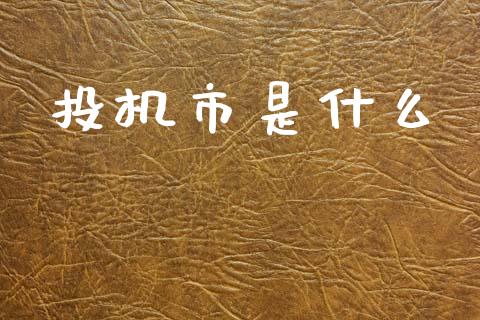 投机市是什么